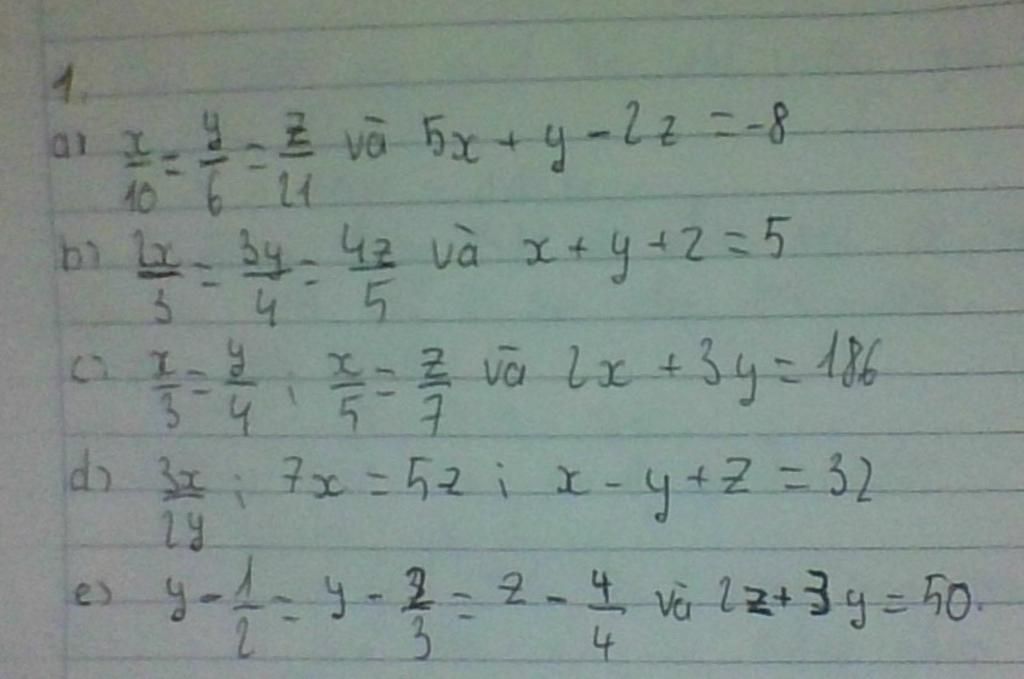 1.
a) x/10 = y/6 = z/21 và 5x + y - 2z = -8
b) 2x/3 = 3y/4 = 4z/5 và x + y + z = 5
c) x/3 = y/4 ; x/5 = z/7 và 2x + 3y = 186
d) 3x/2y ; 7x = 5z ; x - y + z = 32
e) y - 1/2 = y - 2/3 = z - 4/4 và 2z + 3y = 50.